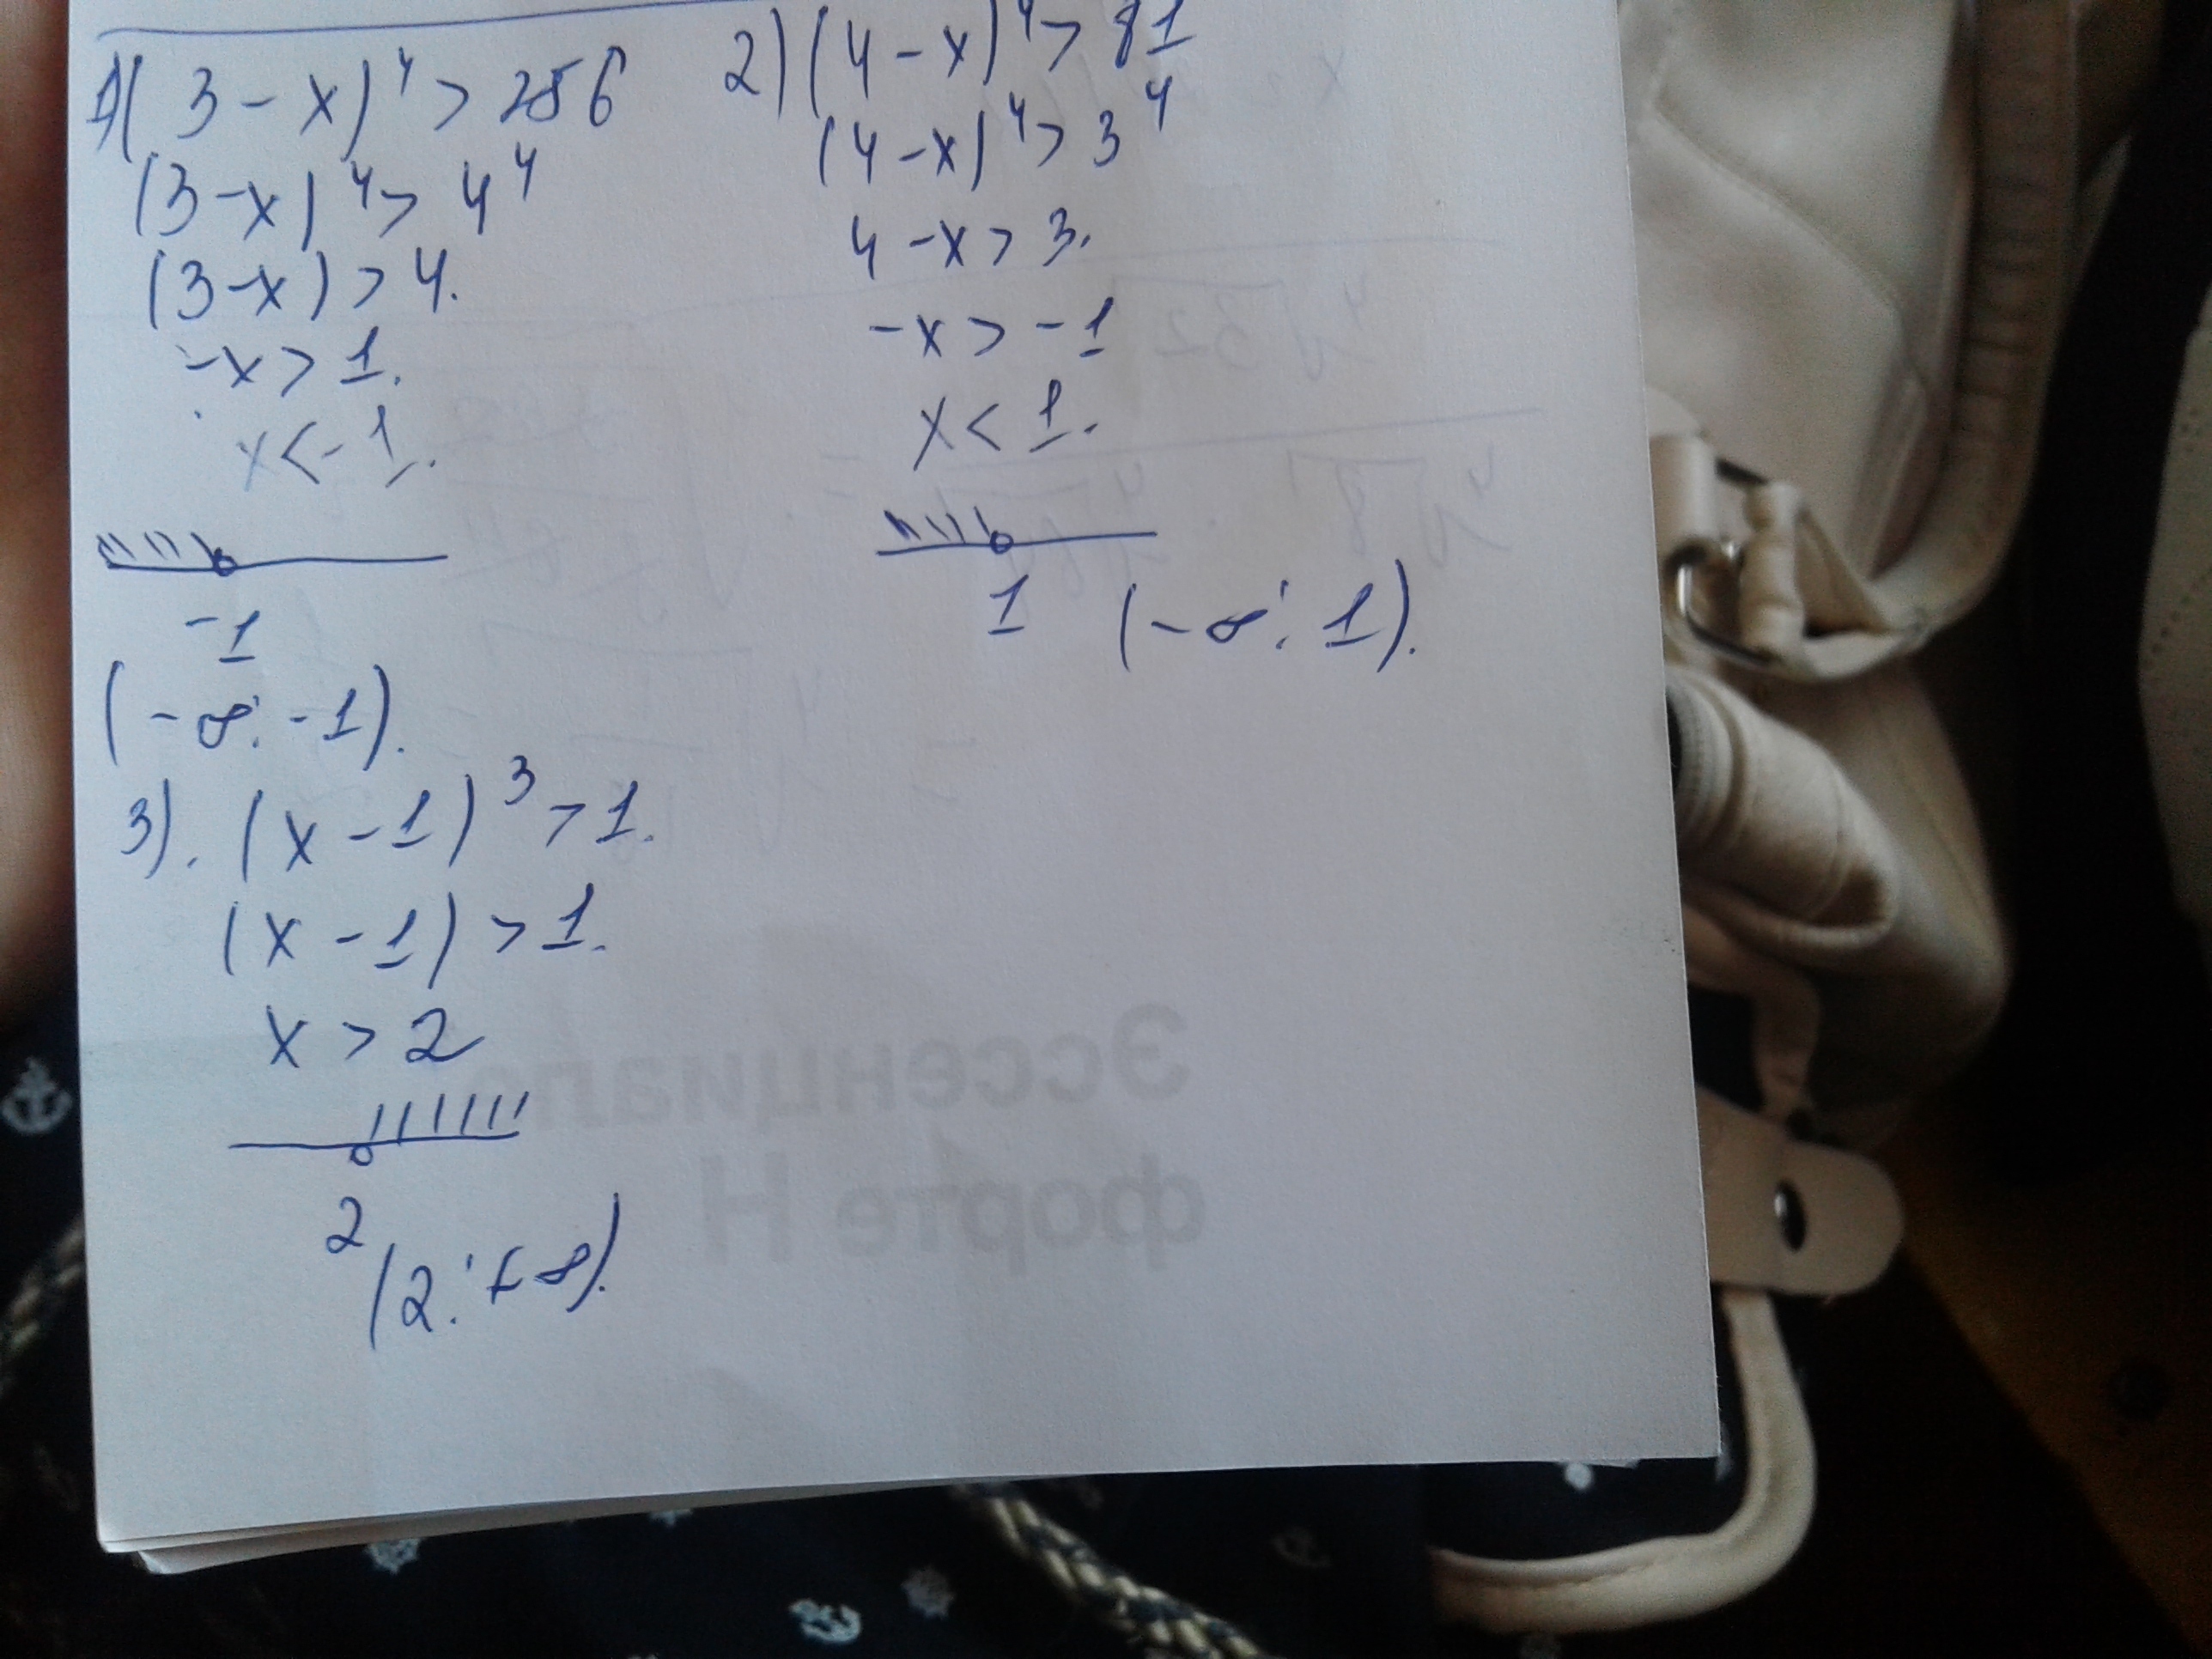 1) (3-x)⁴ > 256
(3-x)⁴ > 4⁴
(3-x) > 4.
-x > 1.
x < -1.
-1
(-∞; -1).
2) (4-x)⁴ > 81
(4-x)⁴ > 3⁴
4-x > 3.
-x > -1
x < 1.
1 (-∞; 1).
3). (x-1)³ > 1.
(x-1) > 1.
x > 2
2
(2; +∞).
Эссенциале
форте Н